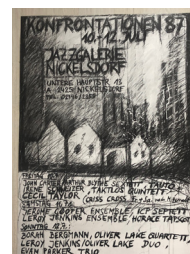 KONFRONTATIONEN 87
10.-12. JULI
JAZZGALERIE
NICKELSDORF
UNTERE HAUPTSTR. 13
A-2425 NICKELSDORF
TEL: 02146/2359
FREITAG 10.7.:
JOHN CARTER/ARTHUR BLYTHE SEXTETT, "DAUTO",
IRENE SCHWEIZER, "TAKTLOS QUINTETT",
CECIL TAYLOR
SAMSTAG 11.7.:
JEROME COOPER ENSEMBLE, ICP SEPTETT
LEROY JENKINS ENSEMBLE, HORACE TAPSCOTT
SONNTAG 12.7.:
BORAH BERGMANN, OLIVER LAKE QUARTETT,
LEROY JENKINS/OLIVER LAKE DUO,
EVAN PARKER TRIO